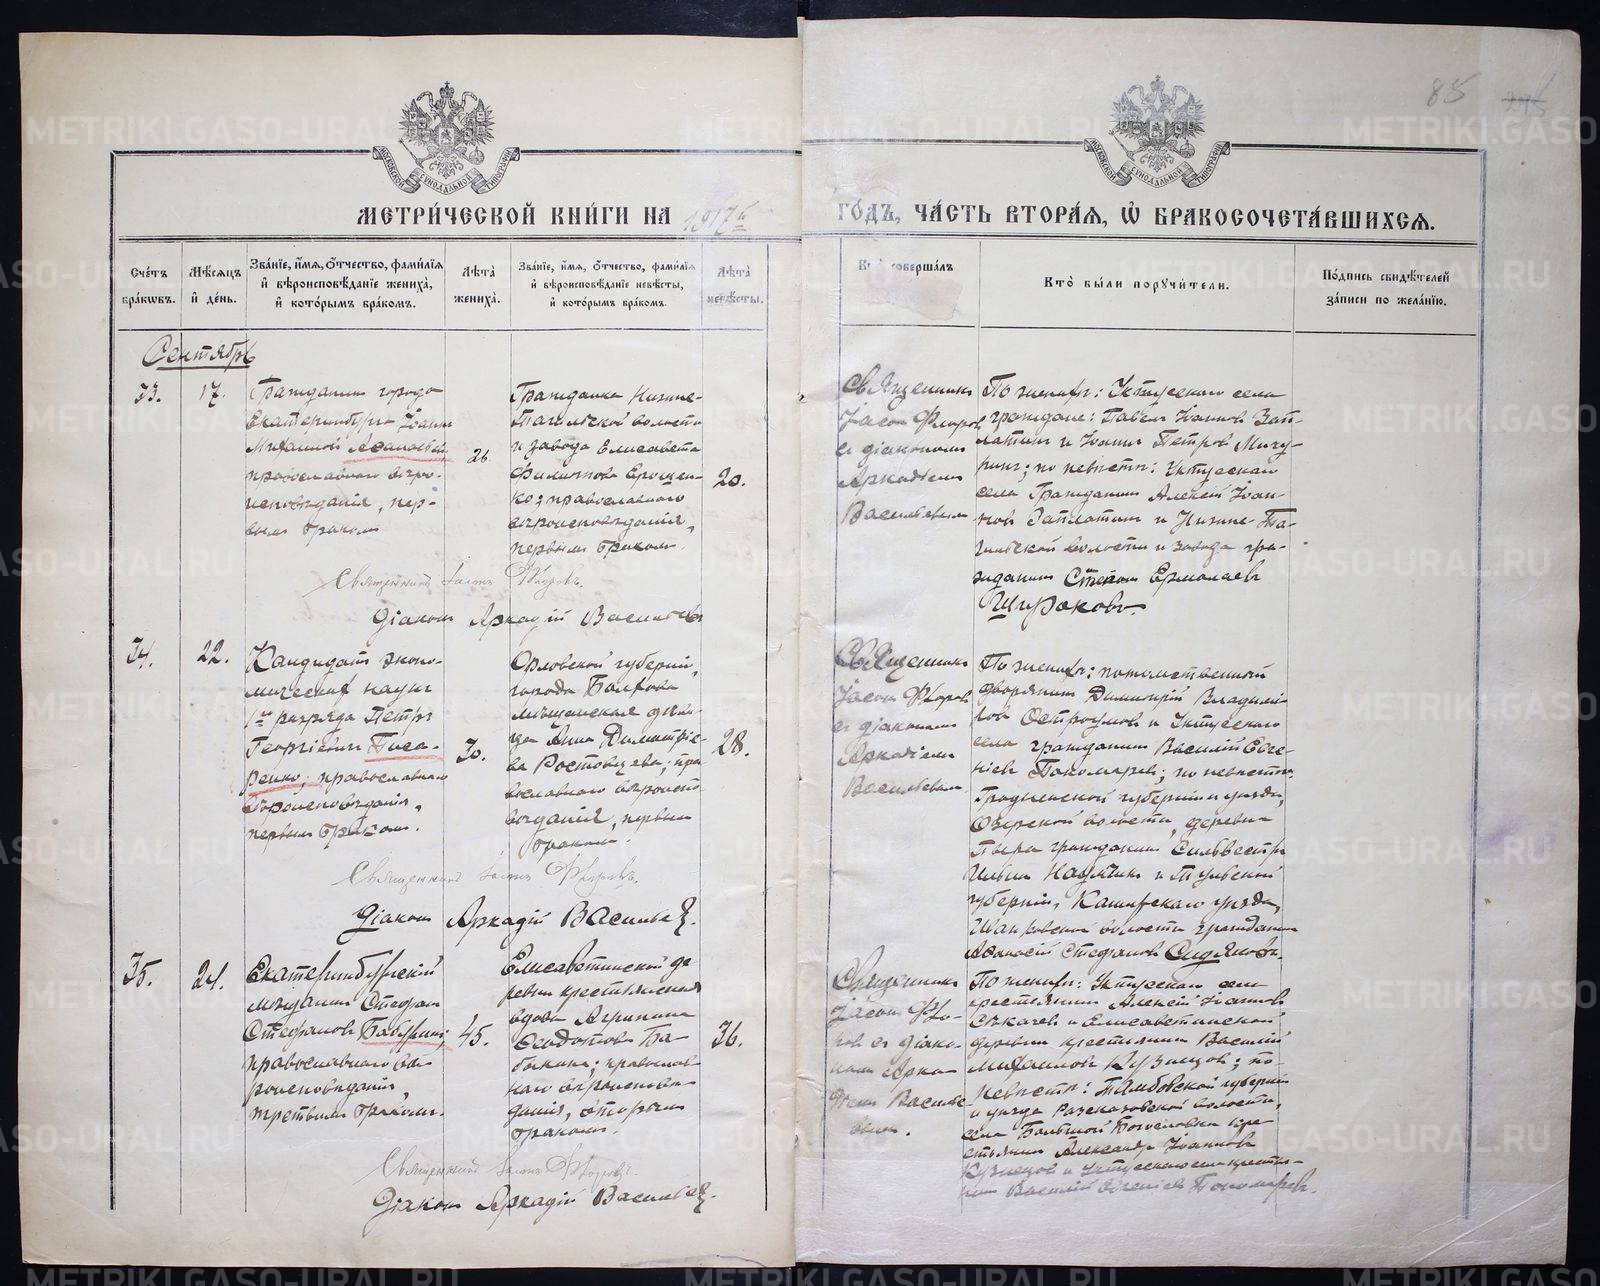 85
МОСКОВСКОЙ СѴНОДАЛЬНОЙ ТИПОГРАФІИ
МОСКОВСКОЙ СѴНОДАЛЬНОЙ ТИПОГРАФІИ
МЕТРИ́ЧЕСКОЙ КНИ́ГИ НА 1917й
ГО́ДЪ, ЧА́СТЬ ВТОРА́Я, Ѡ БРАКОСОЧЕТА́ВШИХСЯ.
Сче́тъ
бра́кѡвъ.
Мѣ́сяцъ
и҆ де́нь.
Зва́нїе, и҆́мя, ѻ҆́тчество, фами́лїя
и҆ вѣроисповѣ́данїе жениха̀,
и҆ кото́рымъ бра́комъ.
Лѣ́та
жениха̀.
Зва́нїе, и҆́мя, ѻ҆́тчество, фами́лїя
и҆ вѣроисповѣ́данїе невѣ́сты,
и҆ кото́рымъ бра́комъ.
Лѣ́та
невѣ́сты.
Кто̀ соверша́лъ
Кто̀ бы́ли порꙋчи́тели.
По́дпись свидѣ́телей
за́писи по жела́нїю.
Сентябрь
33.
17.
Гражданин города
Екатеринбурга Іоанн
Михаилов
православнаго вѣро-
исповѣданія, пер-
вым браком
26
Гражданка Нижне-
Тагильской волости
и завода Елисавета
Филиппова Ерощен-
ко; православнаго
вѣроисповѣданія,
первым браком.
20.
Священник
Іасон Флоров
с діаконом
Аркадіем
Васильевым
По жениху: Уктусскаго села
граждане: Павел Іоаннов Зап-
латин и Іоанн Петров Мичу-
рин; по невѣсте: Уктусскаго
села гражданин Алексѣй Іоан-
нов Заплатин и Нижне-Та-
гильской волости и завода гра-
жданин Стефан Ермолаев
Широков.
Священник Іасон Флоров.
Діакон Аркадій Васильев
34.
22.
Кандидат эконо-
мических наук
1го разряда Петр
Георгіевич Писа-
ренко; православнаго
вѣроисповѣданія,
первым браком.
30.
Орловской губерніи,
города Болхова
мѣщанская деви-
ца Анна Димитріе-
ва Ростовцева; пра-
вославнаго вѣроиспо-
вѣданія, первым
браком.
28.
Священник
Іасон Флоров
с діаконом
Аркадіем
Васильевым
По жениху: потомственный
дворянин Димитрій Владимі-
ров Остроумов и Уктусскаго
села гражданин Василій Евге-
ніев Пономарев; по невѣсте:
Гродненской губерніи и уезда,
Озерской волости, деревни
гражданин Сильвестр
Ильин и Тульской
губерніи, Каширскаго уезда,
волости гражданин
Афанасій Стефанов
Священник Іасон Флоров.
Діакон Аркадій Васильев.
35.
24.
Екатеринбургскій
мещанин Стефан
Стефанов Бабушкин;
православнаго вѣ-
роисповѣданія,
третьим браком.
45.
Елисаветинской де-
ревни крестьянская
вдова Агрипина
Феодотова Ба-
бикина; православ-
наго вѣроисповѣ-
данія, вторым
браком.
36.
Священник
Іасон Фло-
ров с діако-
ном Арка-
діем Василье-
вым.
По жениху: Уктусскаго села
крестьянин Алексѣй Іоаннов
Секачев и Елисаветинской
деревни крестьянин Василій
Михаилов Кузнецов; по
невѣсте: Тамбовской губерніи
и уезда Разсказовской волости,
села Большой Богословки кре-
стьянин Александр Іоаннов
Кузнецов и Уктусскаго села крестья-
нин Василій Евгеніев Пономарев.
Священник Іасон Флоров.
Діакон Аркадій Васильев.
METRIKI.GASO-URAL.RU